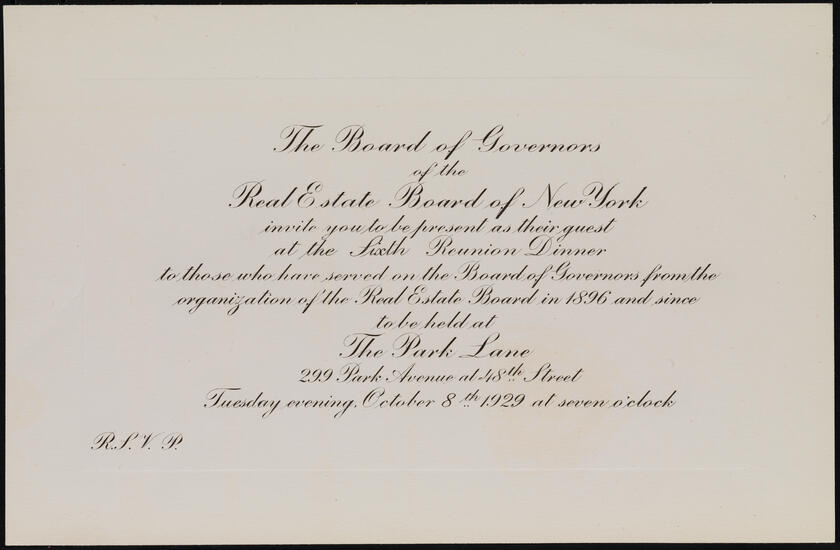 The Board of Governors
of the
Real Estate Board of New York
invite you to be present as their guest
at the Sixth Reunion Dinner
to those who have served on the Board of Governors from the
organization of the Real Estate Board in 1896 and since
to be held at
The Park Lane
299 Park Avenue at 48th Street
Tuesday evening, October 8th 1929 at seven o'clock
R.S.V.P.